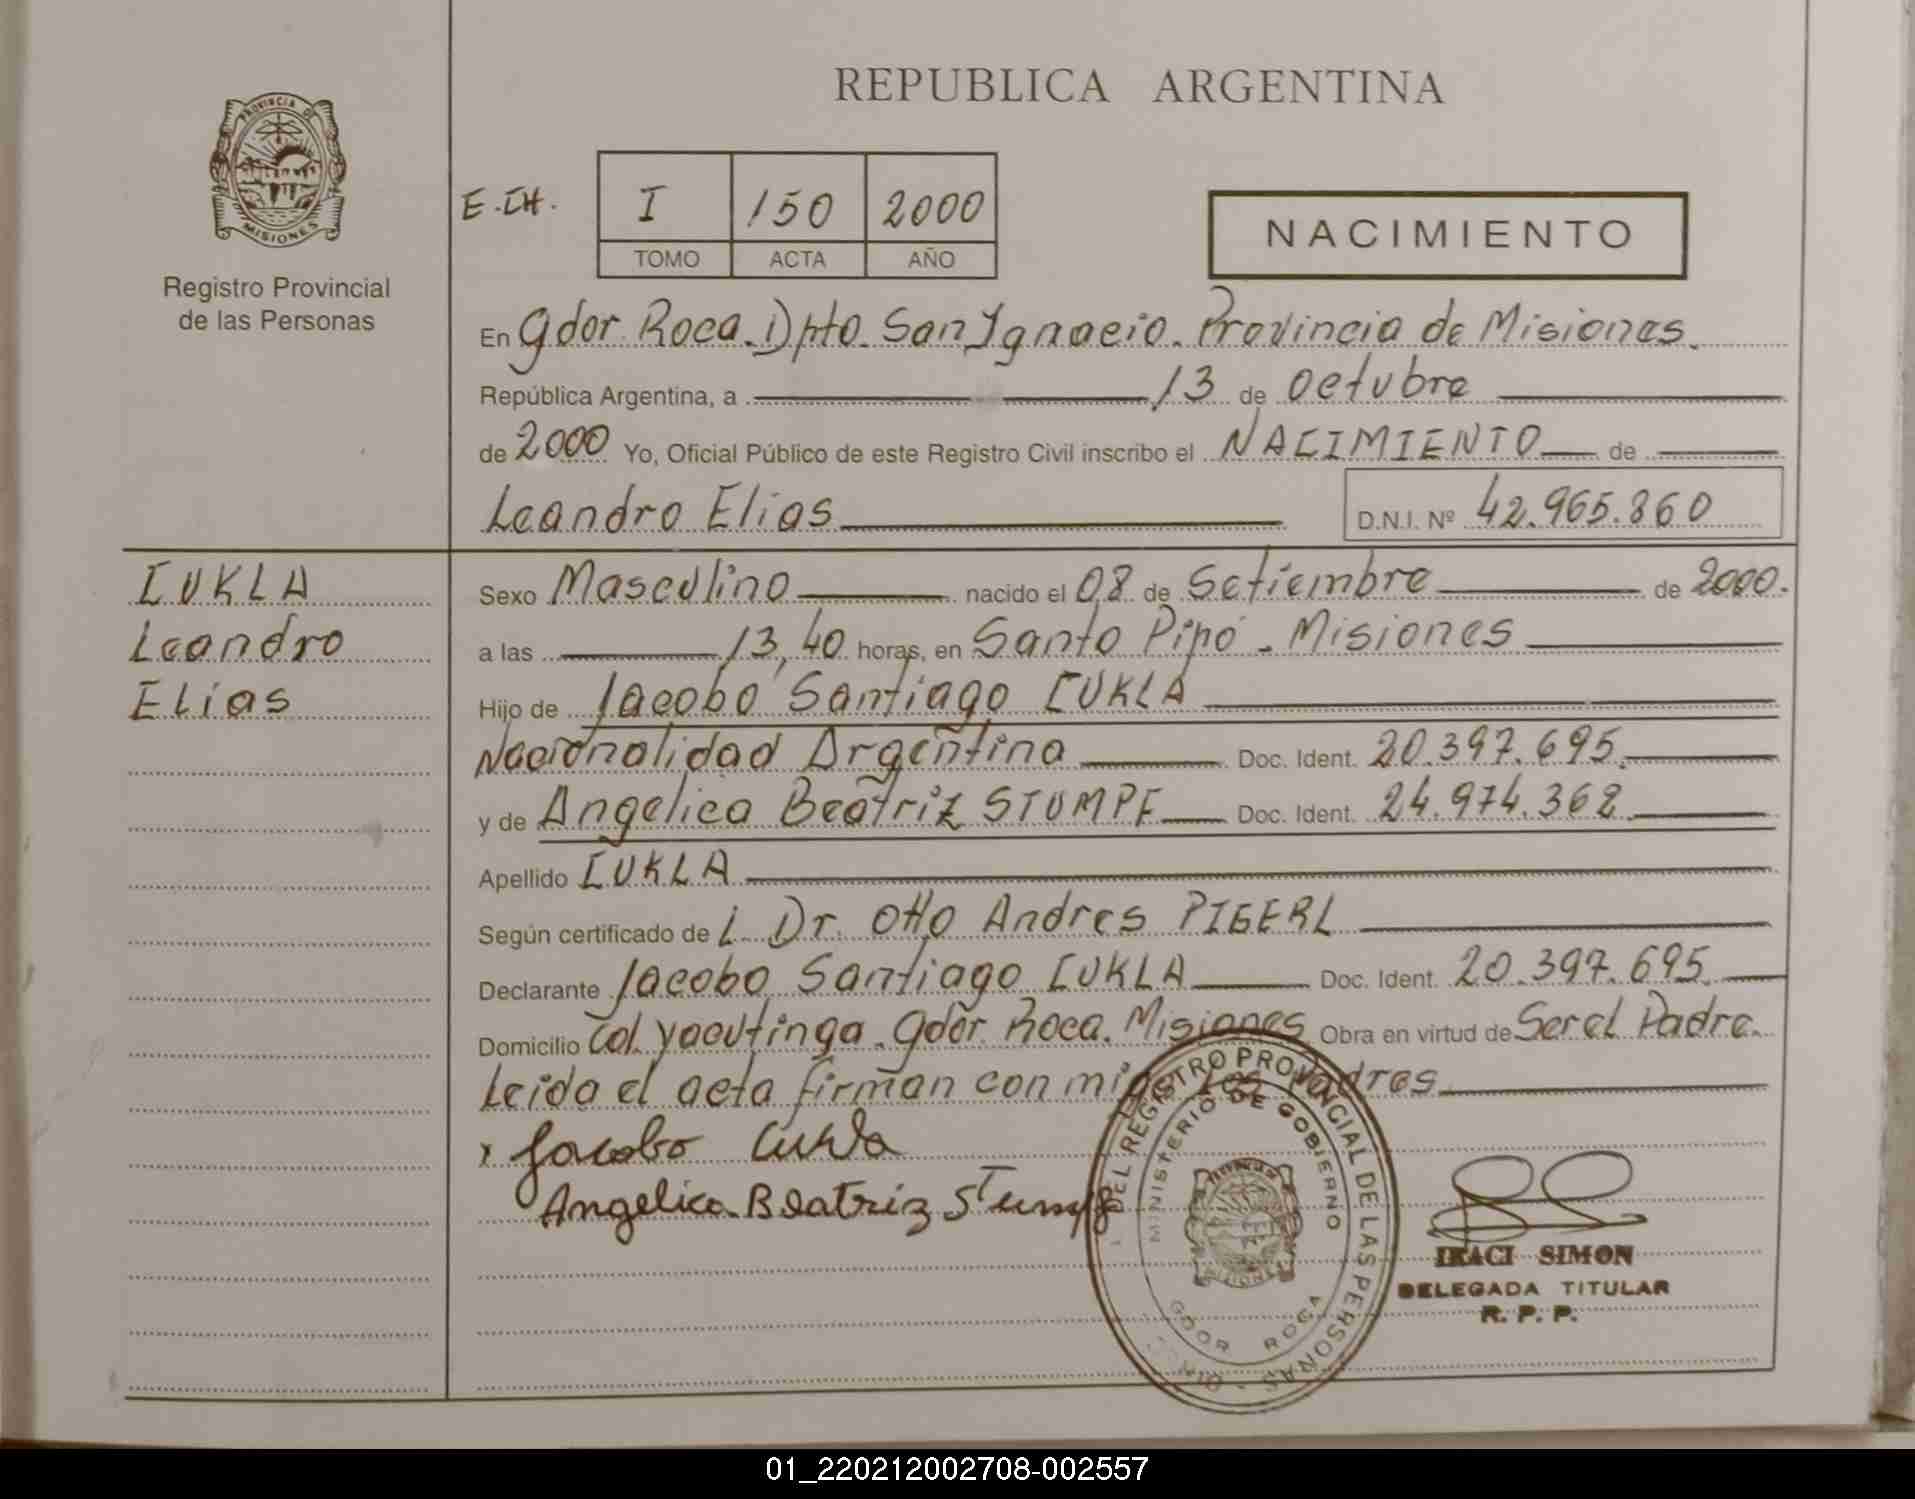 REPUBLICA ARGENTINA
PROVINCIA DE
MISIONES
Registro Provincial
de las Personas
E.CH.
I 150 2000
TOMO ACTA AÑO
NACIMIENTO
En Gdor. Roca. Dpto. San Ignacio. Provincia de Misiones.
República Argentina, a 13 de octubre
de 2000 Yo, Oficial Público de este Registro Civil inscribo el NACIMIENTO de
Leandro Elias D.N.I. Nº 42.965.860
CUKLA
Leandro
Elias
Sexo Masculino nacido el 08 de Setiembre de 2000.
a las 13,40 horas, en Santo Pipó - Misiones
Hijo de Jacobo Santiago CUKLA
Nacionalidad Argentina Doc. Ident. 20.397.695.
y de Angelica Beatriz STUMPF Doc. Ident. 24.974.362.
Apellido CUKLA
Según certificado de L Dr. Otto Andres PIGERL
Declarante Jacobo Santiago CUKLA Doc. Ident. 20.397.695.
Domicilio Col. Yacutinga. Gdor. Roca. Misiones Obra en virtud de Ser el Padre.
Leida el acta firman con migo Los Padres.
Jacobo Cukla
Angelica Beatriz Stumpf
DEL REGISTRO PROVINCIAL DE LAS PERSONAS
MINISTERIO DE GOBIERNO
MISIONES
GDOR ROCA
IRACI SIMON
DELEGADA TITULAR
R. P. P.
01_220212002708-002557